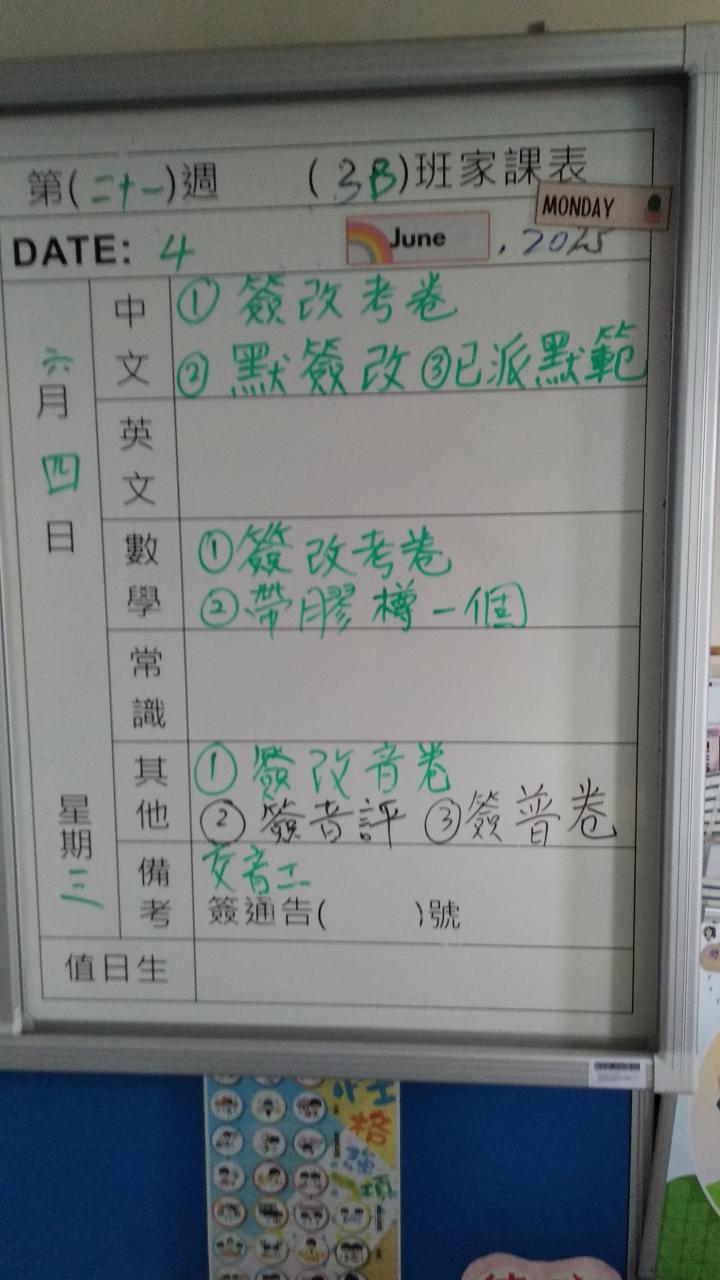 第(二十一)週 (3B)班家課表
MONDAY
DATE: 4 June , 2025
中文 ① 簽改考卷
② 默簽改 ③已派默範
六月四日
英文
數學 ①簽改考卷
②帶膠樽一個
常識
其他 ①簽改音卷
②簽音評 ③簽普卷
星期三
備考 交音工
簽通告( )號
值日生
性格強項